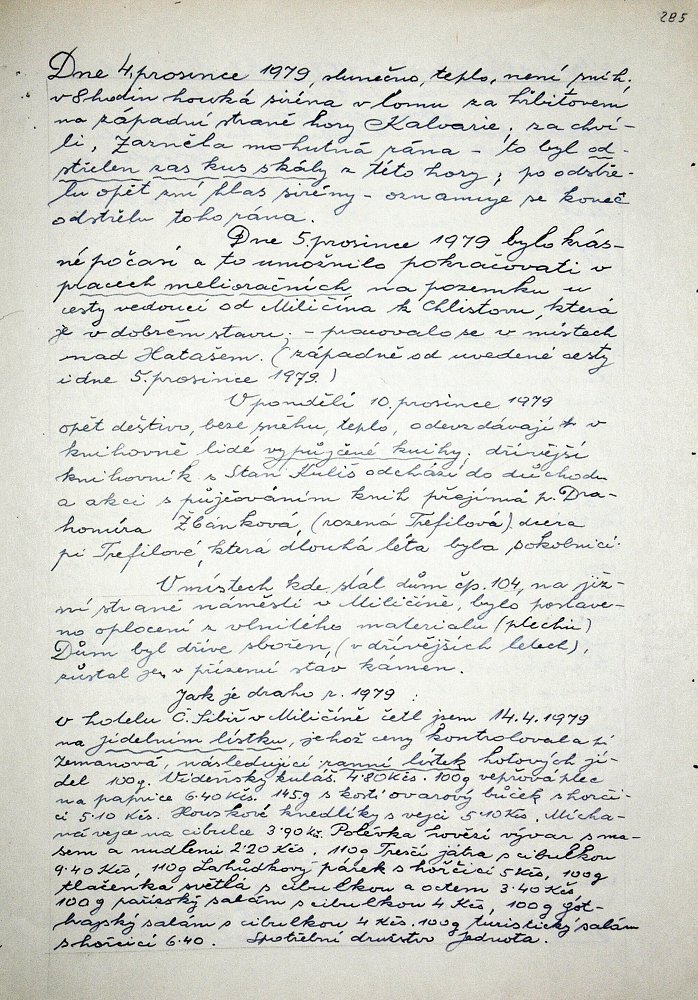 285
Dne 4. prosince 1979, slunečno, teplo, není sníh,
v 8 hodin houká siréna v lomu za hřbitovem
na západní straně hory Kalvarie; za chví-
li, zazněla mohutná rána - to byl od-
střelen zas kus skály z této hory; po odstře-
lu opět zní hlas sirény - oznamuje se konec
odstřelu toho rána.
Dne 5. prosince 1979 bylo krás-
né počasí a to umožnilo pokračovati v
pracech melioračních na pozemku u
cesty vedoucí od Miličína k Chlistovu, která
je v dobrém stavu; - pracovalo se v místech
nad Hatašem. (západně od uvedené cesty
i dne 5. prosince 1979.)
V pondělí 10. prosince 1979
opět deštivo, beze sněhu, teplo, odevzdávají v
knihovně lidé vypůjčené knihy; dřívější
knihovník s Stan Kuliš odchází do důchodu
a akci s půjčováním knih přejímá p. Dra-
homíra Žbánková, (rozená Trefilová) dcera
pí Trefilové, která dlouhá léta byla sokolnicí.
V místech, kde stál dům čp. 104, na již-
ní straně náměstí v Miličíně, bylo postave-
no oplocení z vlnitého materialu (plechu)
Dům byl dříve sbořen, (v dřívějších letech),
zůstal jen v přízemí stav kamen.
Jak je draho r. 1979:
v hotelu Č. Sibiř v Miličíně četl jsem 14.4.1979
na jídelním lístku, jehož ceny kontrolovala pí
Zemanová, následující ranní lístek hotových jí-
del 100g. Vídeňský guláš 4.80 Kčs. 100g vepřová plec
na paprice 6.40 Kčs. 145g s kostí ovarový bůček s hořči-
cí 5.10 Kčs. Houskové knedlíky s vejci 5.10 Kčs, Mícha-
ná vejce na cibulce 3.90 Kčs. Polévka hovězí vývar s ma-
sem a nudlemi 2.20 Kčs, 110g Tresčí játra s cibulkou
9.40 Kčs, 110g Lahůdkový párek s hořčicí 5 Kčs, 100g
tlačenka světlá s cibulkou a octem 3.40 Kčs,
100g pařížský salám s cibulkou 4 Kčs, 100g gót-
hajský salám s cibulkou 4 Kčs. 100g turistický salám
s hořčicí 6.40. Spotřební družstvo Jednota.